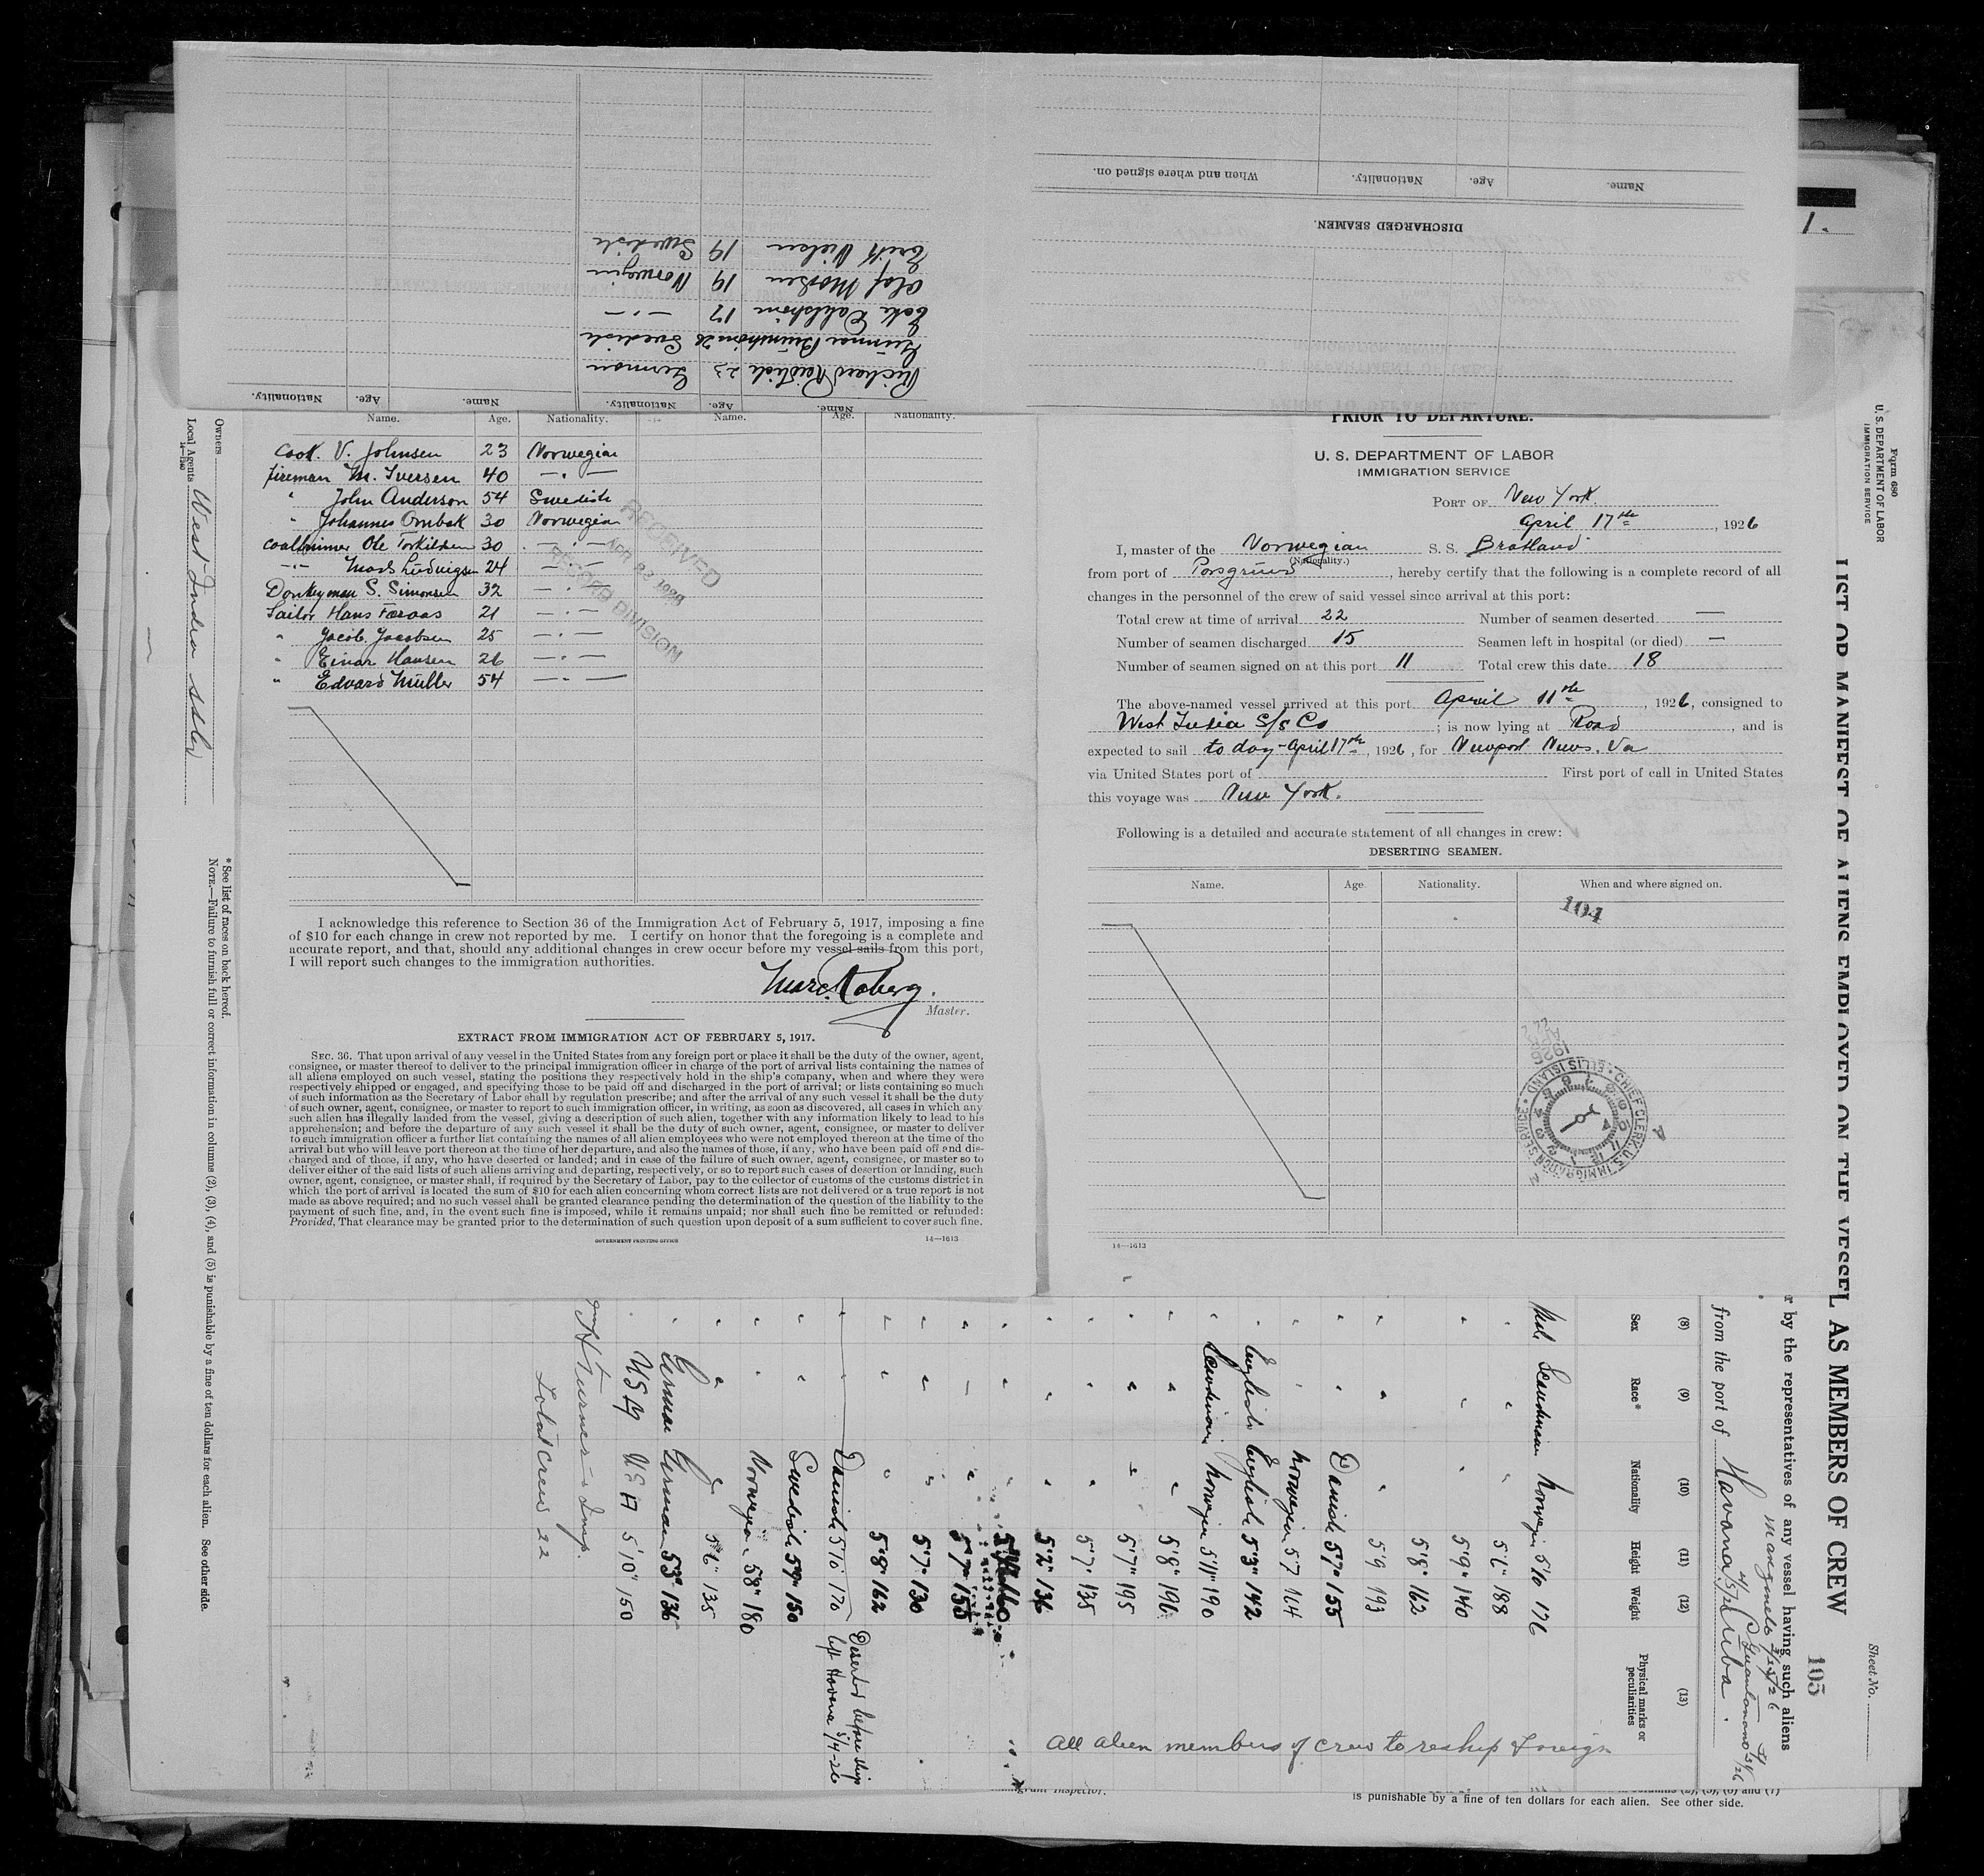 Name. Age. Nationality. Name. Age. Nationality.
Richard 23 German
Gunnar 26 Swedish
17 —"—
Olaf Madsen 19 Norwegian
Erik Nielsen 19 Swedish
DISCHARGED SEAMEN.
Name. Age. Nationality. When and where signed on.
Name. Age. Nationality. Name. Age. Nationality.
Cook V. Johnsen 23 Norwegian
fireman M. Iversen 40 —"—
" John Anderson 54 Swedish
" Johannes Ombak 30 Norwegian
Ole Torkildsen 30 —"—
—"— Mads Ludvigsen 24 —"—
Donkeyman S. Simonsen 32 —"—
Sailor Hans 21 —"—
" Jacob Jacobsen 25 —"—
" Einar Hansen 26 —"—
" Edvard Müller 54 —"—
RECEIVED
APR 23 1926
RECORD DIVISION
I acknowledge this reference to Section 36 of the Immigration Act of February 5, 1917, imposing a fine
of $10 for each change in crew not reported by me. I certify on honor that the foregoing is a complete and
accurate report, and that, should any additional changes in crew occur before my vessel sails from this port,
I will report such changes to the immigration authorities.
Master.
EXTRACT FROM IMMIGRATION ACT OF FEBRUARY 5, 1917.
SEC. 36. That upon arrival of any vessel in the United States from any foreign port or place it shall be the duty of the owner, agent,
consignee, or master thereof to deliver to the principal immigration officer in charge of the port of arrival lists containing the names of
all aliens employed on such vessel, stating the positions they respectively hold in the ship's company, when and where they were
respectively shipped or engaged, and specifying those to be paid off and discharged in the port of arrival; or lists containing so much
of such information as the Secretary of Labor shall by regulation prescribe; and after the arrival of any such vessel it shall be the duty
of such owner, agent, consignee, or master to report to such immigration officer, in writing, as soon as discovered, all cases in which any
such alien has illegally landed from the vessel, giving a description of such alien, together with any information likely to lead to his
apprehension; and before the departure of any such vessel it shall be the duty of such owner, agent, consignee, or master to deliver
to such immigration officer a further list containing the names of all alien employees who were not employed thereon at the time of the
arrival but who will leave port thereon at the time of her departure, and also the names of those, if any, who have been paid off and dis-
charged and of those, if any, who have deserted or landed; and in case of the failure of such owner, agent, consignee, or master so to
deliver either of the said lists of such aliens arriving and departing, respectively, or so to report such cases of desertion or landing, such
owner, agent, consignee, or master shall, if required by the Secretary of Labor, pay to the collector of customs of the customs district in
which the port of arrival is located the sum of $10 for each alien concerning whom correct lists are not delivered or a true report is not
made as above required; and no such vessel shall be granted clearance pending the determination of the question of the liability to the
payment of such fine, and, in the event such fine is imposed, while it remains unpaid; nor shall such fine be remitted or refunded:
Provided, That clearance may be granted prior to the determination of such question upon deposit of a sum sufficient to cover such fine.
GOVERNMENT PRINTING OFFICE 14—1613
PRIOR TO DEPARTURE.
U. S. DEPARTMENT OF LABOR
IMMIGRATION SERVICE
PORT OF New York
April 17th, 1926
I, master of the Norwegian S. S. Bratland
(Nationality.)
from port of Porsgrund, hereby certify that the following is a complete record of all
changes in the personnel of the crew of said vessel since arrival at this port:
Total crew at time of arrival 22 Number of seamen deserted —
Number of seamen discharged 15 Seamen left in hospital (or died) —
Number of seamen signed on at this port 11 Total crew this date 18
The above-named vessel arrived at this port April 11th, 1926, consigned to
West India S/S Co; is now lying at Road, and is
expected to sail to day - April 17th, 1926, for Newport News, Va
via United States port of First port of call in United States
this voyage was New York.
Following is a detailed and accurate statement of all changes in crew:
DESERTING SEAMEN.
Name. Age. Nationality. When and where signed on.
104
CHIEF CLERK, U.S. IMMIGRATION SERVICE • ELLIS ISLAND •
1926
14—1613
Form 680
U. S. DEPARTMENT OF LABOR
IMMIGRATION SERVICE
LIST OR MANIFEST OF ALIENS EMPLOYED ON THE VESSEL AS MEMBERS OF CREW
Sheet No.
105
r by the representatives of any vessel having such aliens
from the port of Havana Cuba.
(8) (9) (10) (11) (12) (13)
Sex Race* Nationality Height Weight Physical marks or peculiarities
Male Norwegian 5'10 176
" " " 5'6" 188
" " " 5'9" 140
5'8" 162
" " " 5'9 193
" " Danish 5'7" 155
" " Norwegian 5'7 164
" English English 5'3" 142
" Norwegian 5'11" 190
" " " 5'8" 196
" " " 5'7" 195
" " " 5'7" 135
" " " 5'2" 136
" " " 160
" " " 5'7" 155
" " " 5'7" 130
" " " 5'8" 162
" Danish 5'10" 170 Deserted before ship left Havana 5/4-26
" " Swedish 5'9" 150
" " Norwegian 5'8" 180
" " " 5'6" 135
" German German 5'3" 136
USA USA 5'10" 150
Turner Insp.
Total Crew 22
All alien members of crew to reship foreign
Owners
Local Agents West India SS Co
14—1240
* See list of races on back hereof.
NOTE.—Failure to furnish full or correct information in columns (2), (3), (4), and (5) is punishable by a fine of ten dollars for each alien. See other side.
Immigrant Inspector.
is punishable by a fine of ten dollars for each alien. See other side.
1.